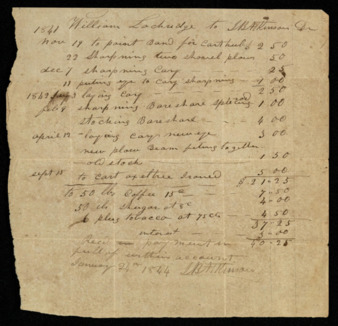 1841 William Lockridge to S B Wilkinson Dr
Nov 19 to point Band for Cart hub $ 2 50
22 Sharpning two shovel plows 50
dec 7 sharpning Cary 25
11 puting eye to Cary sharpning 1 00
1842 3 laying Cary 2 50
feb 8 sharpning Bareshare 1 00
Stocking Bareshare 4 00
april 12 laying Cary new eye 3 00
new plow Beam puting together
old stock 1 50
sept 15 to Cart axeltree Ironed 5 00
$ 21-25
to 50 lb Coffee 15c 7-50
50 lb Shugar at 8c 4-00
6 plug tobacco at 75cts 4 50
37-25
interest 3-00
40-25
Rec in payment in
full of within account
January 24th 1844 S B Wilkinson